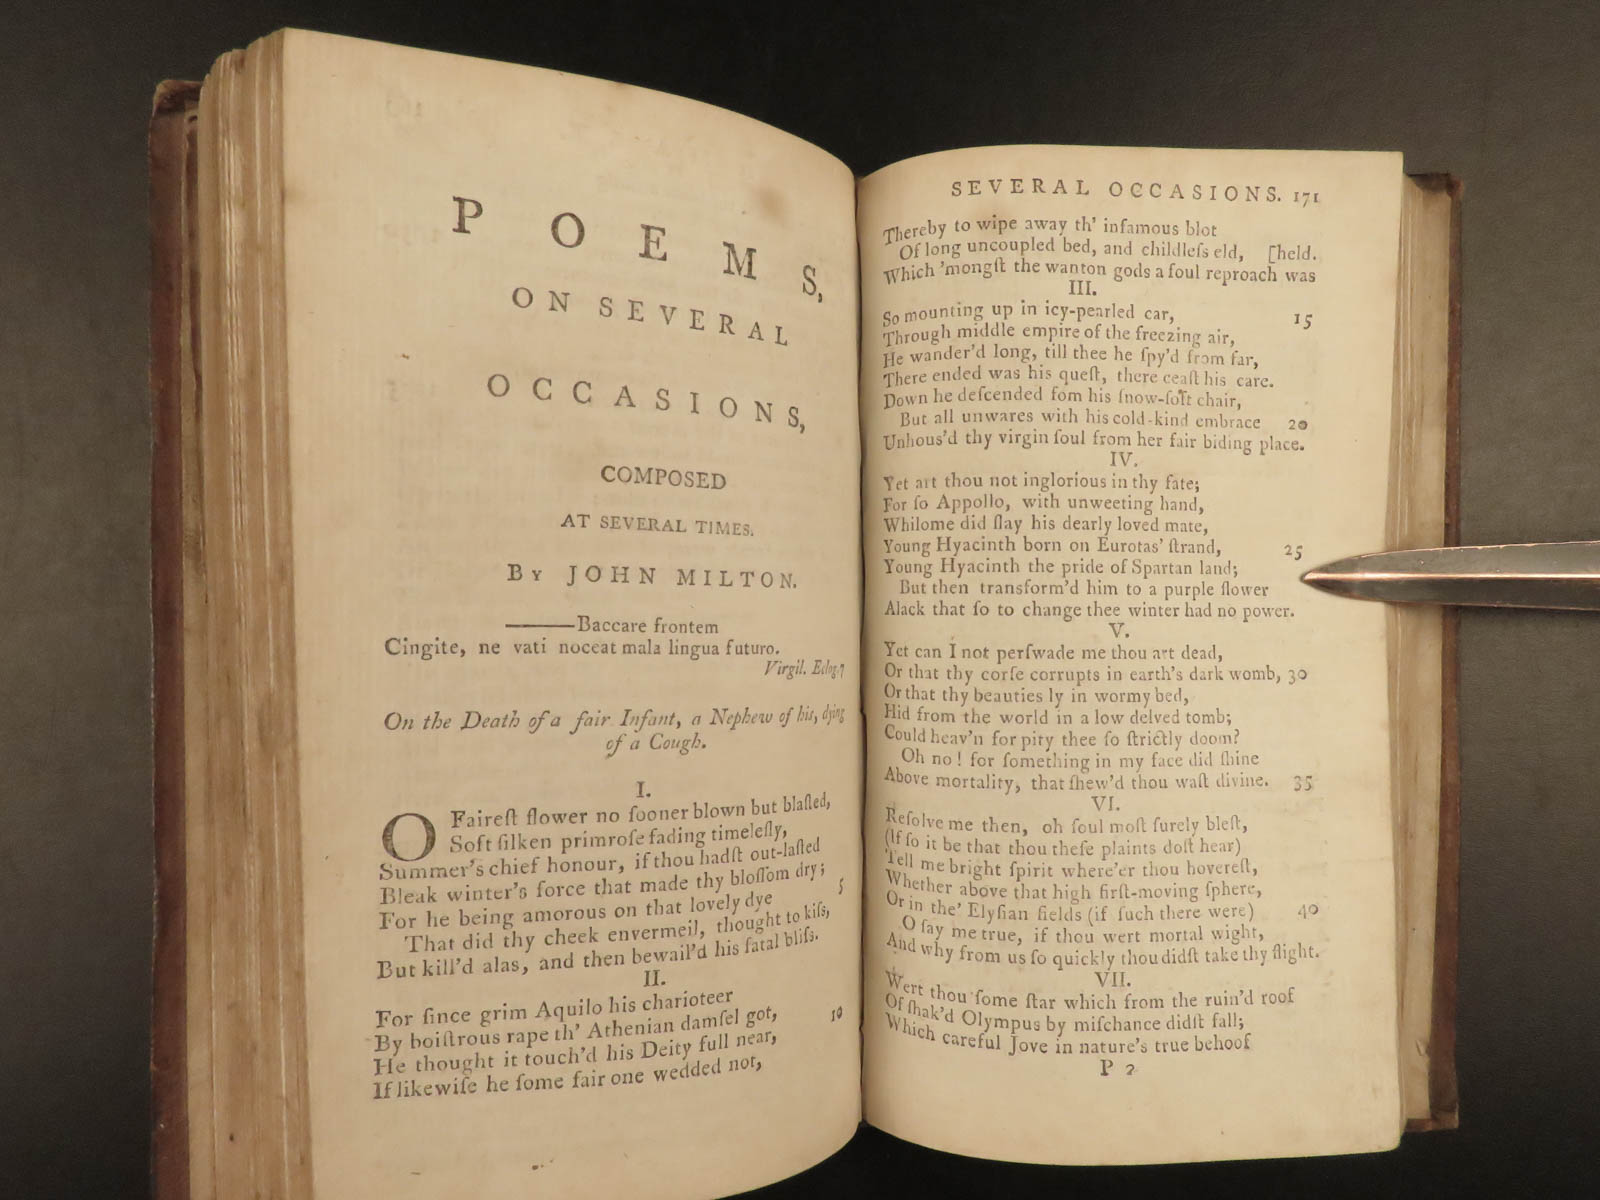 POEMS,
ON SEVERAL
OCCASIONS,
COMPOSED
AT SEVERAL TIMES.
BY JOHN MILTON.
———Baccare frontem
Cingite, ne vati noceat mala lingua futuro.
Virgil. Eclog. 7
On the Death of a fair Infant, a Nephew of his, dying
of a Cough.
I.
O Faireſt flower no ſooner blown but blaſted,
Soft ſilken primroſe fading timeleſly,
Summer's chief honour, if thou hadſt out-laſted
Bleak winter's force that made thy bloſſom dry; 5
For he being amorous on that lovely dye
That did thy cheek envermeil, thought to kiſs,
But kill'd alas, and then bewail'd his fatal bliſs.
II.
For ſince grim Aquilo his charioteer
By boiſtrous rape th' Athenian damſel got,
He thought it touch'd his Deity full near, 10
If likewiſe he ſome fair one wedded not,
SEVERAL OCCASIONS. 171
Thereby to wipe away th' infamous blot
Of long uncoupled bed, and childleſs eld, [held.
Which 'mongſt the wanton gods a foul reproach was
III.
So mounting up in icy-pearled car, 15
Through middle empire of the freezing air,
He wander'd long, till thee he ſpy'd from far,
There ended was his queſt, there ceaſt his care.
Down he deſcended fom his ſnow-ſoft chair,
But all unwares with his cold-kind embrace 20
Unhous'd thy virgin ſoul from her fair biding place.
IV.
Yet art thou not inglorious in thy fate;
For ſo Appollo, with unweeting hand,
Whilome did ſlay his dearly loved mate,
Young Hyacinth born on Eurotas' ſtrand, 25
Young Hyacinth the pride of Spartan land;
But then transform'd him to a purple flower
Alack that ſo to change thee winter had no power.
V.
Yet can I not perſwade me thou art dead,
Or that thy corſe corrupts in earth's dark womb, 30
Or that thy beauties ly in wormy bed,
Hid from the world in a low delved tomb;
Could heav'n for pity thee ſo ſtrictly doom?
Oh no! for ſomething in my face did ſhine
Above mortality, that ſhew'd thou waſt divine. 35
VI.
Reſolve me then, oh ſoul moſt ſurely bleſt,
(If ſo it be that thou theſe plaints doſt hear)
Tell me bright ſpirit where'er thou hovereſt,
Whether above that high firſt-moving ſphere,
Or in the' Elyſian fields (if ſuch there were) 40
O ſay me true, if thou wert mortal wight,
And why from us ſo quickly thou didſt take thy flight.
VII.
Wert thou ſome ſtar which from the ruin'd roof
Of ſhak'd Olympus by miſchance didſt fall;
Which careful Jove in nature's true behoof
P 2